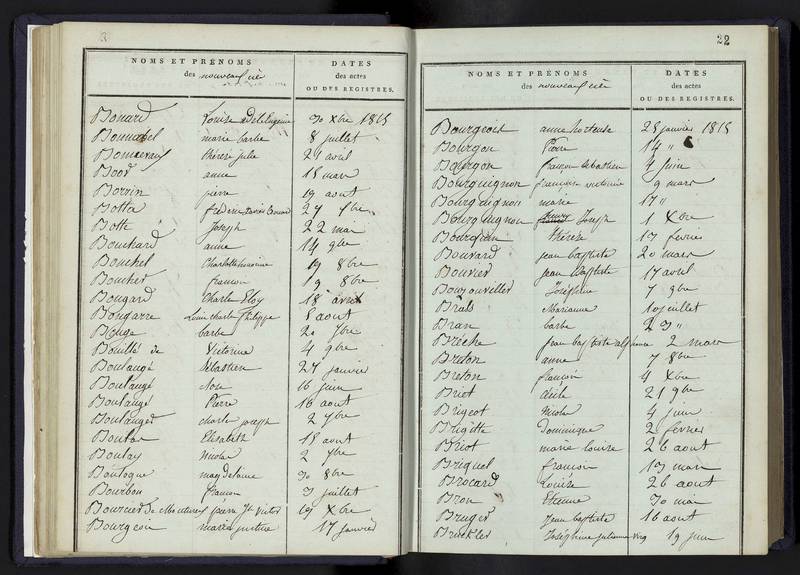 NOMS ET PRÉNOMS
des
DATES
des actes
OU DES REGISTRES.
Bonard Louise 30 Xbre 1815
marie barbe 8 juillet
thérèse julie 24 avril
Boor anne 18 mars
Borrin pierre 19 aout
Botta 27 7bre
Botte Joseph 22 mai
Bouchard anne 14 9bre
Bouchel Charlotte 19 8bre
Boucher françois 19 8bre
Bougard Charle Eloy 18 avril
Bougarre Louis charle Philippe 8 aout
Bouge barbe 20 7bre
Bouillé de Victorine 4 9bre
Boulangé Sébastien 27 janvier
Boulangé rose 16 juin
Boulangé Pierre 16 aout
Boulanger charle joseph 2 7bre
Elisabeth 18 aout
Boulay nicolas 2 7bre
Boulogne magdelaine 30 8bre
Bourbon françois 3 juillet
Bourcier De pierre Victor 19 Xbre
Bourgeois marie justine 17 janvier
22
NOMS ET PRÉNOMS
des
DATES
des actes
OU DES REGISTRES.
Bourgeois anne hortense 28 janvier 1815
Bourgon Pierre 14 "
Bourgon françois Sébastien 4 juin
Bourguignon victorine 9 mars
Bourguignon marie 17 "
Bourguignon Joseph 1 Xbre
thérèse 13 fevrier
Bouvard jean baptiste 20 mars
Bouvier jean Baptiste 17 avril
Bouzonviller Joséphine 7 9bre
Marianne 10 juillet
Bran barbe 23 "
Brèche jean baptiste 2 mars
Breton anne 7 8bre
Breton françois 4 Xbre
Briot 21 9bre
Brigeot nicolas 4 juin
Brigitte Dominique 2 fevrier
Briot marie louise 26 aout
Briquel françois 13 mars
Brocard Louise 26 aout
Bron Etienne 30 mai
Bruger Jean baptiste 16 aout
Bruckler Joséphine julienne 19 juin